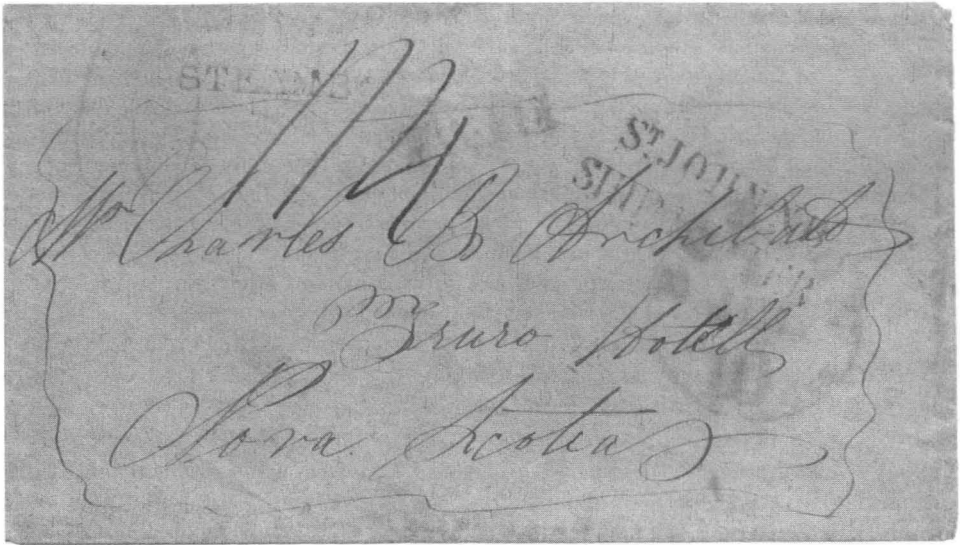 STEAMB
ST JOHN
SHIP
Mr Charles B. Archibald
Truro Hotell
Nova Scotia